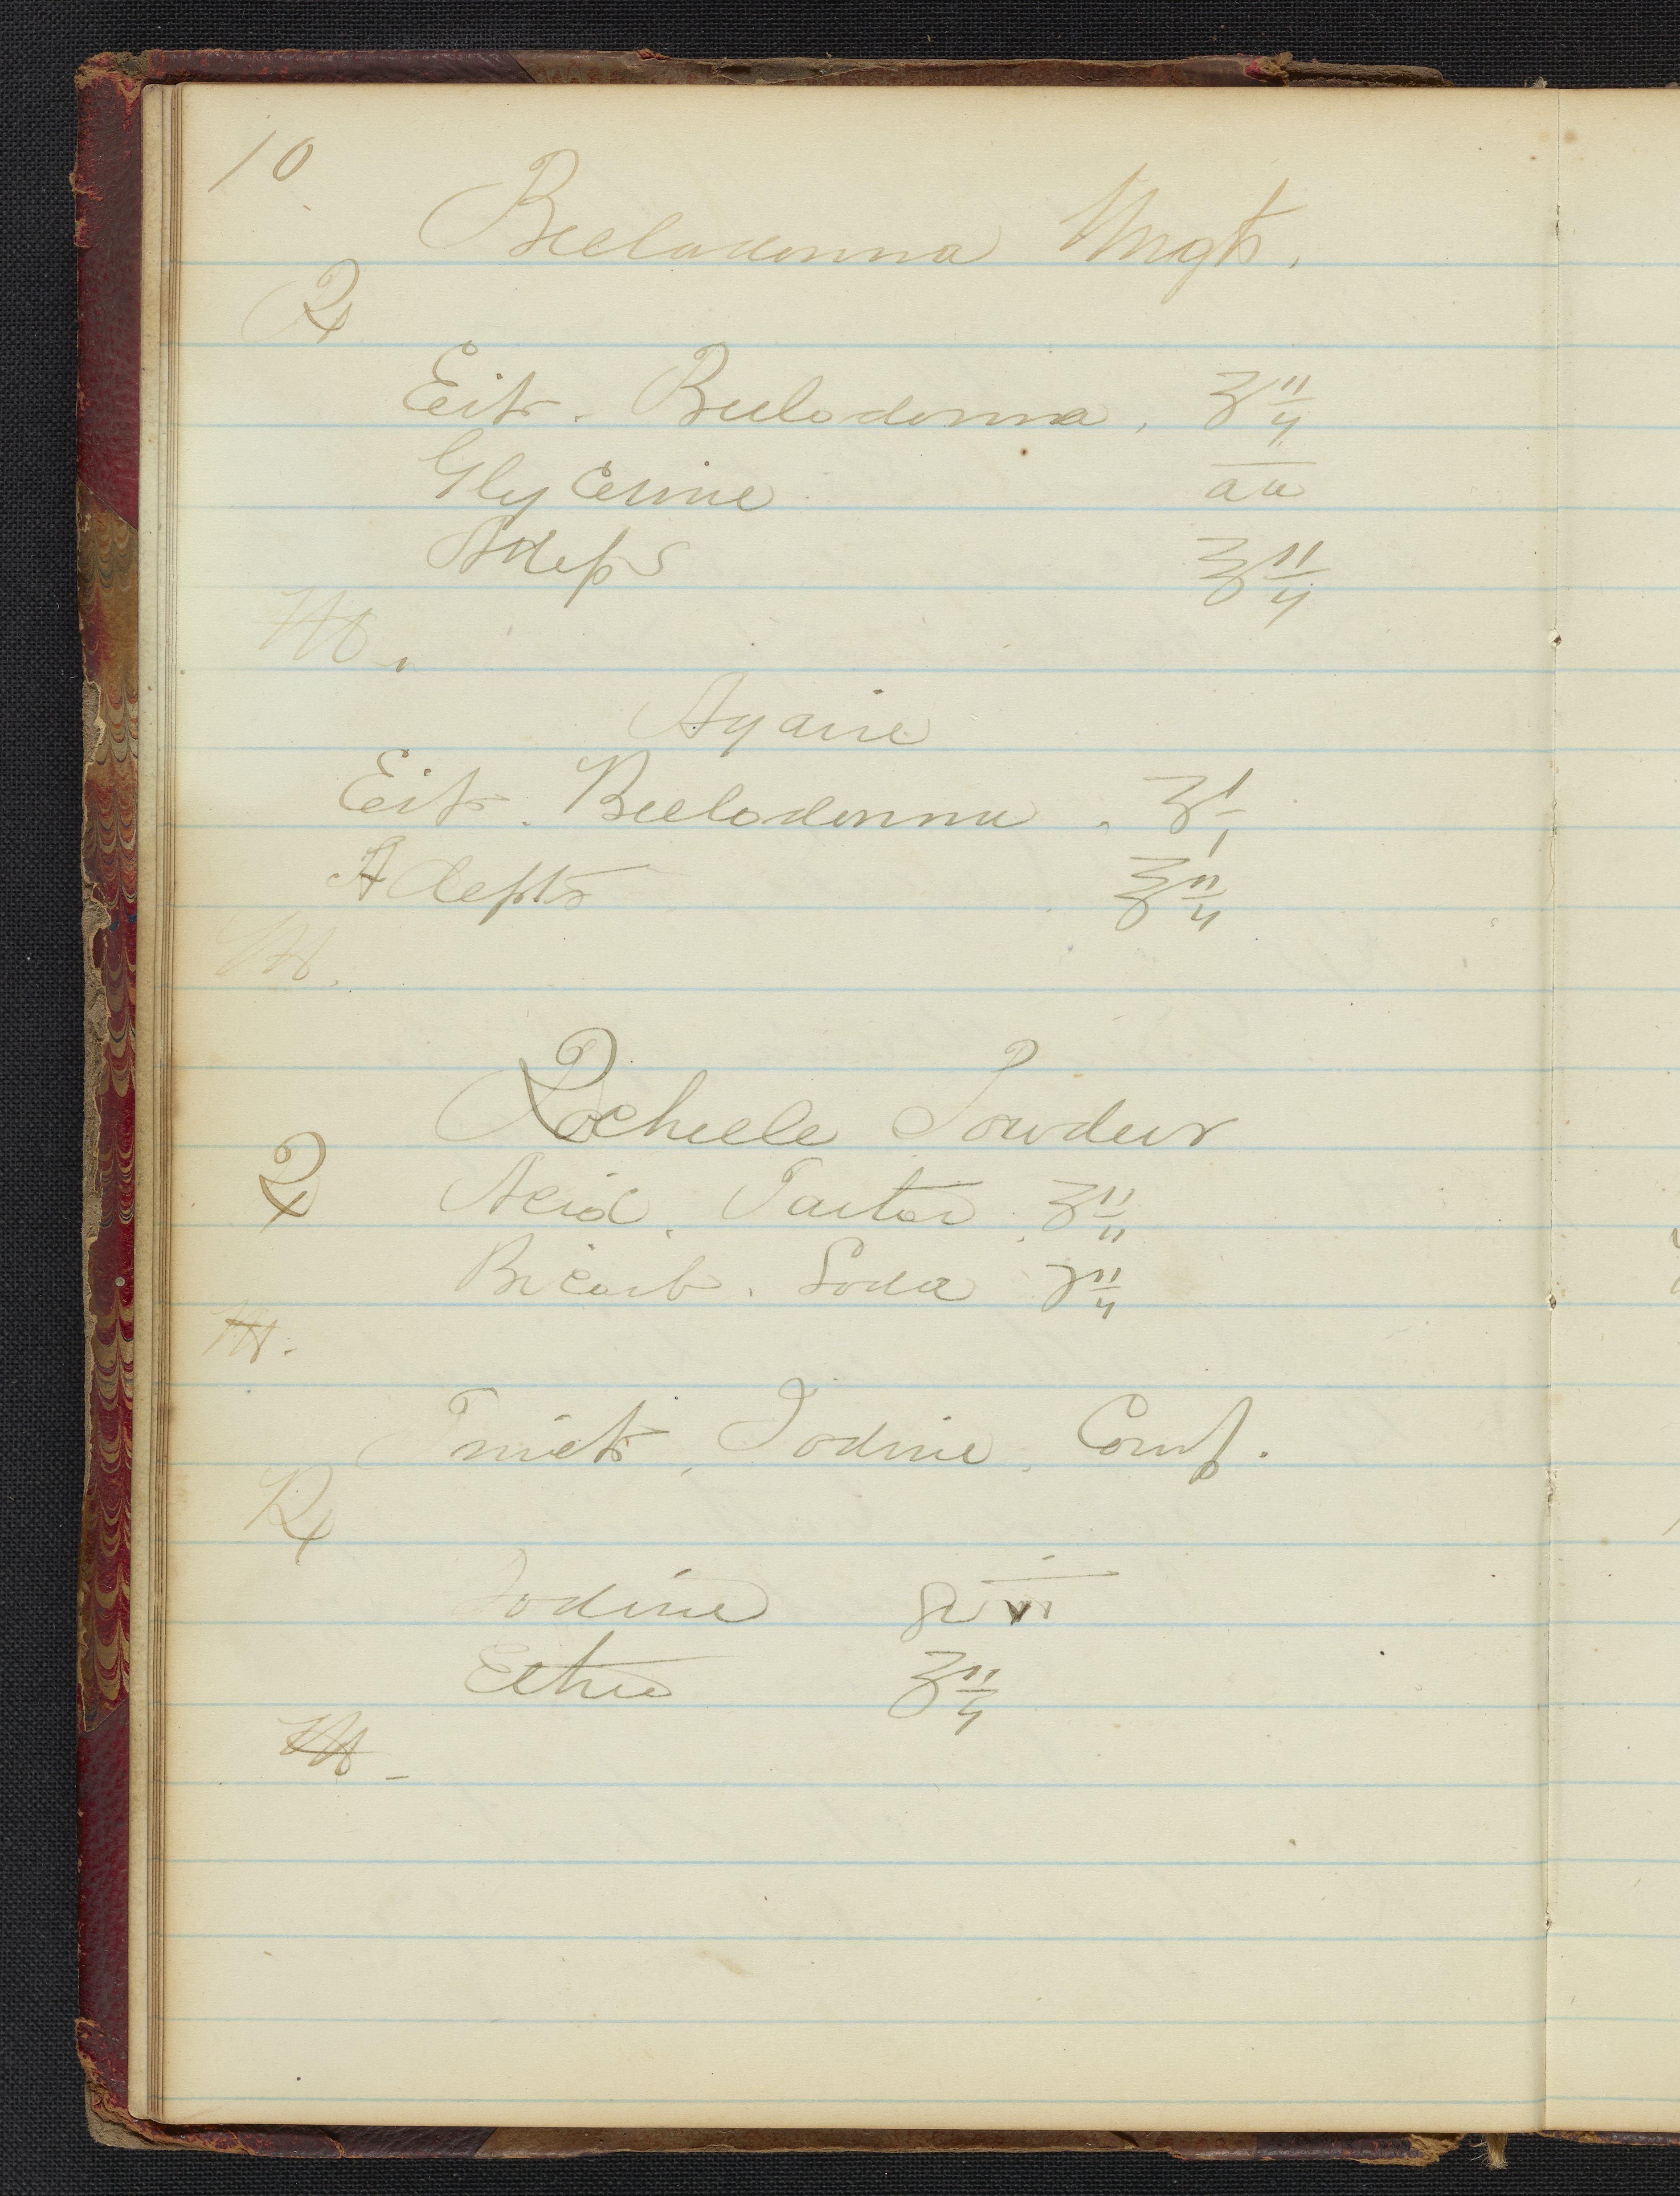 10
Belladonna Ungt.
℞
Ext. Belladonna. ʒ ii
Glycerine aa
Adeps ℥ ii
M.
Again
Ext. Belladonna. ʒ i
Adepts ℥ ii
M.
Rochelle Powder
℞ Acid. Tarter ʒ ii
Bicarb. Soda ʒ ii
M.
Tinct. Iodine. Comp.
℞
Iodine gr vi
Ether ℥ ii
M.